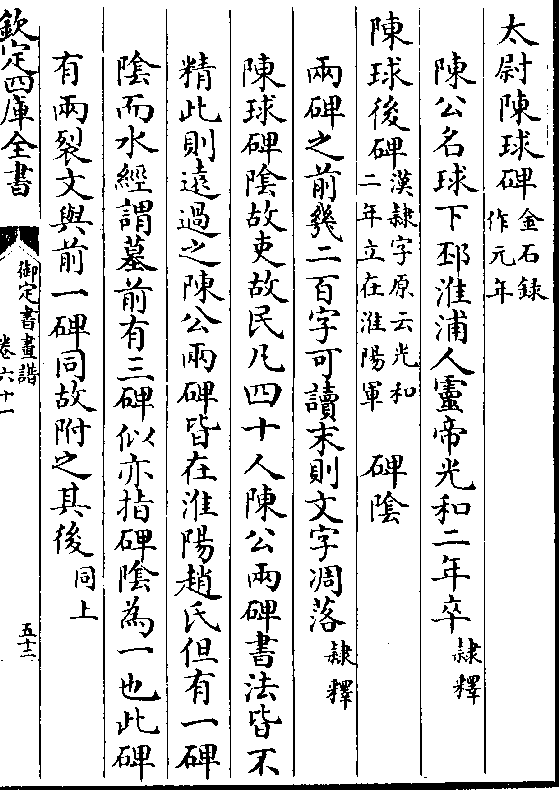 太尉陳球碑金石録作元年
陳公名球下邳淮浦人靈帝光和二年卒隷釋
陳球後碑漢隷字原云光和二年立在淮陽軍 碑陰
兩碑之前幾二百字可讀末則文字凋落隷釋
陳球碑陰故吏故民凡四十人陳公兩碑書法皆不
精此則遠過之陳公兩碑皆在淮陽趙氏但有一碑
陰而水經謂墓前有三碑似亦指碑陰為一也此碑
有兩裂文與前一碑同故附之其後同上
欽定四庫全書
御定書畫譜
卷六十一
五十二